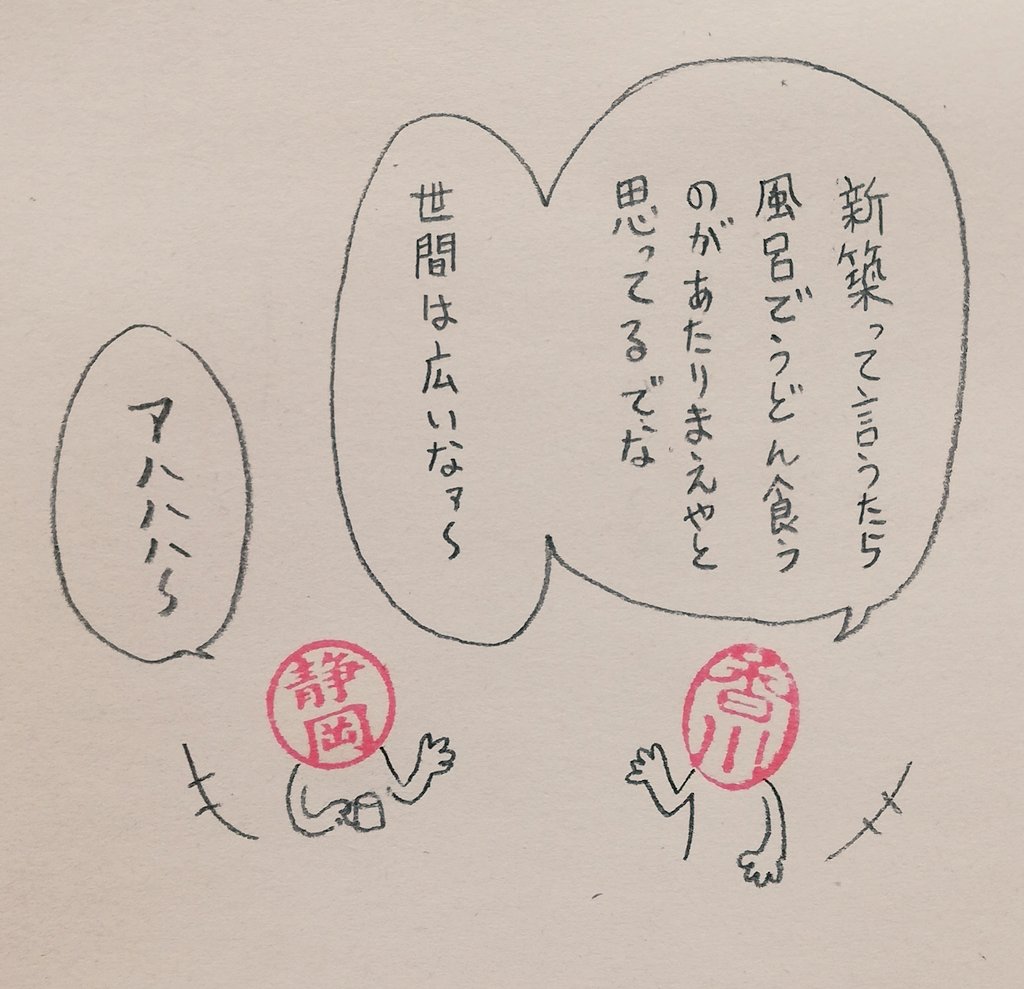 新築って言うたら
風呂でうどん食う
のがあたりまえやと
思ってるでな
世間は広いなァ〜
アハハハ〜
香川
静岡